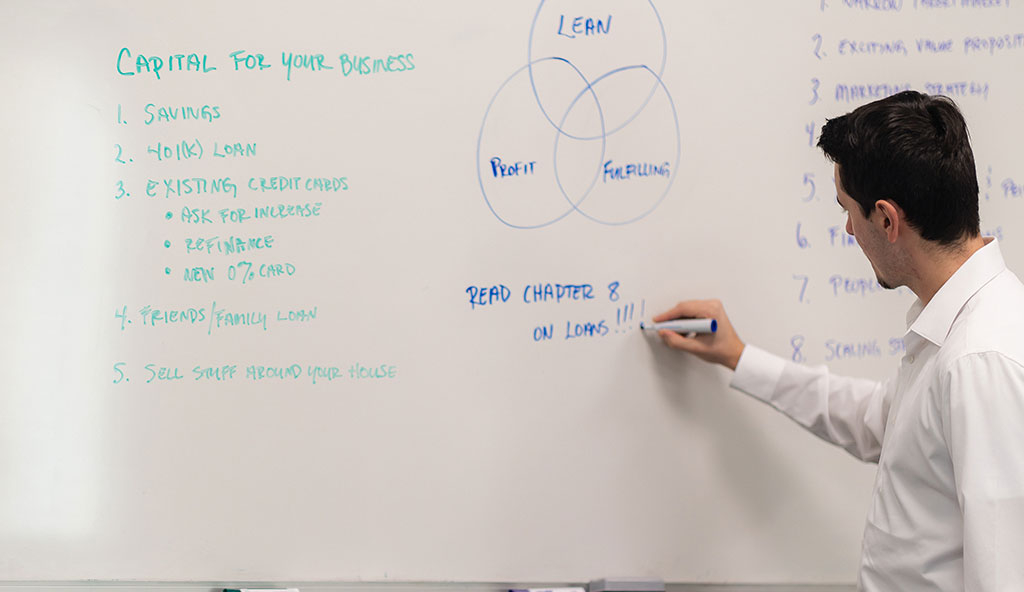 CAPITAL FOR YOUR BUSINESS
1. SAVINGS
2. 401(K) LOAN
3. EXISTING CREDIT CARDS
• ASK FOR INCREASE
• REFINANCE
• NEW 0% CARD
4. FRIENDS/FAMILY LOAN
5. SELL STUFF AROUND YOUR HOUSE
LEAN
PROFIT
FULFILLING
READ CHAPTER 8
ON LOANS!!!!
1. NARROW TARGET MARKET
2. EXCITING VALUE
3. MARKETING STRATEGY
4
5.
6.
7.
8. SCALING